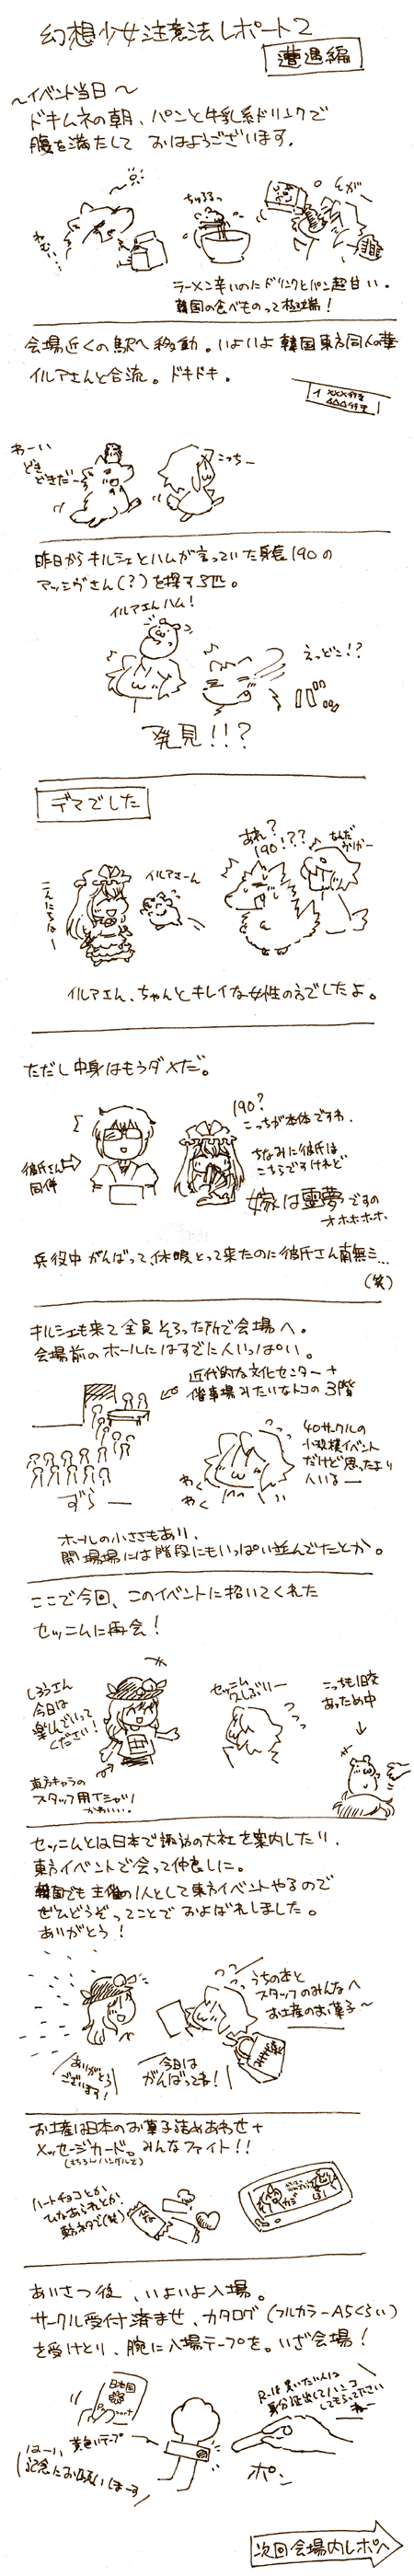 幻想少女注意法レポート2
遭遇編
～イベント当日～
ドキムネの朝、パンと牛乳系ドリンクで
腹を満たして おはようございます。
ねむい…
ちゅるるっ
ラーメン辛いのにドリンクとパン超甘い。
韓国の食べものって極端!
会場近くの駅へ移動。いよいよ韓国東方同人の華
イルアさんと合流。ドキドキ。
わーい
どき
どきだー
こっちー
昨日からキルシェとハムが言っていた身長190の
マッシヴさん(?)を探す3匹。
イルアさんハム!
えっどこ!?
発見!!?
デマでした
こんにちわー
イルアさーん
あれ?
190!??
なんだ
イルアさん、ちゃんとキレイな女性の方でしたよ。
ただし中身はもうダメだ。
彼氏さん
同伴
190?
こっちが本体ですわ.
ちなみに彼氏は
こちらですけれど
嫁は霊夢ですの
オホホホホ.
兵役中がんばって、休暇とって来たのに彼氏さん南無ミ…
(笑)
キルシェも来て全員そろった所で会場へ。
会場前のホールにはすでに人いっぱい。
近代的な文化センター+
ずらー
わく
わく
40サークルの
小規模イベント
だけど思ったより
人いるー
ホールの小ささもあり、
開場時には階段にもいっぱい並んでたとか。
ここで今回、このイベントに招いてくれた
セッニムに再会!
しろうさん
今日は
楽しんでいって
ください!
東方キャラの
スタッフ用Tシャツ
かわいい.
セッニム
久しぶりー
こっちも旧交
あっため中
セッニムとは日本で諏訪の大社を案内したり、
東方イベントで会って仲良しに。
韓国でも主催の1人として東方イベントやるので
ぜひどうぞってことで およばれしました。
ありがとう!
うちの本と
スタッフのみんなへ
お土産のお菓子～
ありがとう
ございます!
今日は
がんばってね!
お土産は日本のお菓子詰めあわせ+
メッセージカード。みんなファイト!!
(もちろんハングルで)
ハートチョコとか
ひなあられとか
東方ネタで(笑)
あいさつ後、いよいよ入場。
サークル受付済ませ、カタログ(フルカラーA5くらい)
を受けとり、腕に入場テープを。いざ会場!
日本国
黄色いテープ
はーい
記念にお願いしまーす
身分証出してハンコ
してもらってください
ねー
ポン
次回会場内レポへ